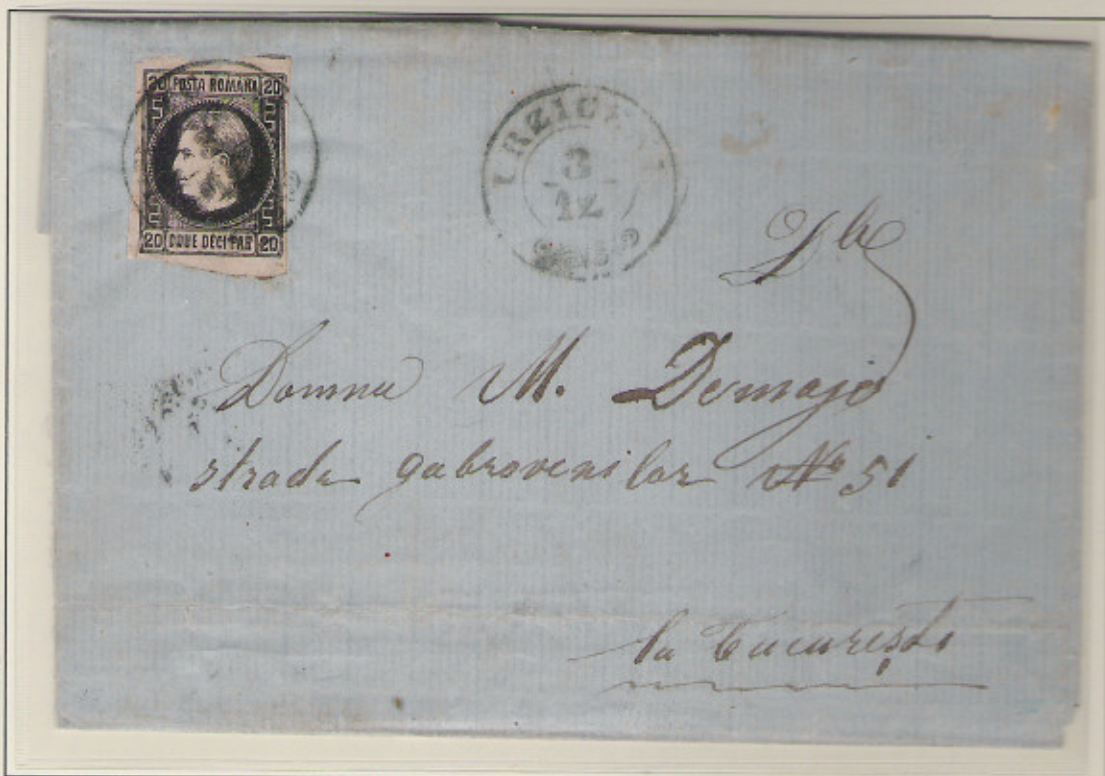 20 POSTA ROMANA 20
20 DOUE DECI PAR 20
URZICENI
3
12
Dlui
Domnu M. Demajo
strada gabrovenilor No 51
la Bucuresti